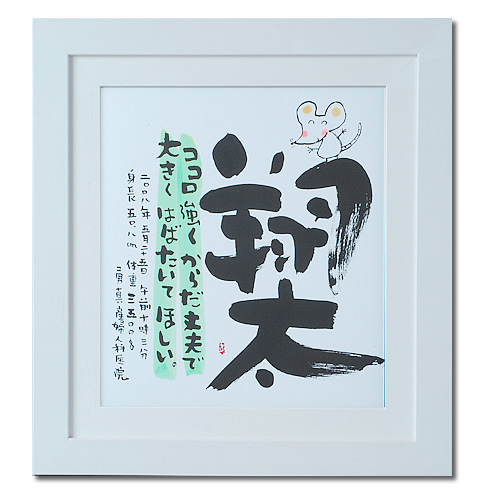 翔太
ココロ強くからだ丈夫で
大きくはばたいてほしい。
二〇〇八年 五月二十五日 午前十時三分
身長 五〇.八cm 体重 三五〇〇g
産婦人科医院